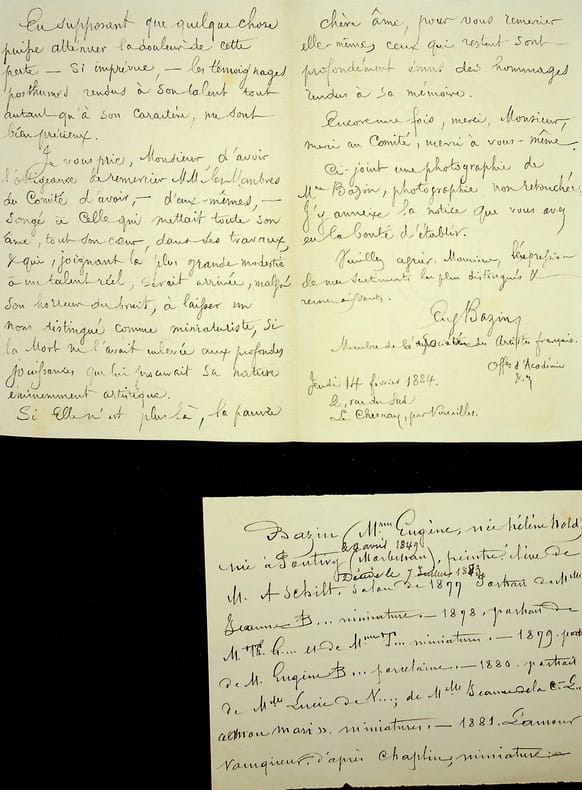 En supposant que quelque chose
puisse atténuer la douleur de cette
perte — si imprévue, — les témoignages
posthumes rendus à son talent tout
autant qu'à son caractère, me sont
bien précieux.
Je vous prie, Monsieur d'avoir
l'obligeance de remercier MM. les Membres
du Comité d'avoir, — d'eux-mêmes, —
songé à Celle qui mettait toute son
âme, tout son cœur, dans ses travaux,
& qui, joignant la plus grande modestie
à un talent réel, serait arrivée, malgré
son horreur du bruit, à laisser un
nom distingué comme miniaturiste, si
la Mort ne l'avait enlevée aux profondes
jouissances que lui procurait sa nature
éminemment artistique.
Si Elle n'est plus là, la pauvre
chère âme, pour vous remercier
elle-même, ceux qui restent sont
profondément émus des hommages
rendus à sa mémoire.
Encore une fois, merci, Monsieur,
merci au Comité, merci à vous-même.
Ci-joint une photographie de
Mme Bazin, photographie non retouchée.
J'y annexe la notice que vous avez
eu la bonté d'établir.
Veuillez agréer, Monsieur, l'expression
de mes sentiments les plus distingués &
reconnaissants.
Eug Bazin
Membre de la Société des Artistes français.
Offr d'Académie
Jeudi 14 février 1884.
2, rue du Sud
Le Chesnay, par Versailles.
Bazin (Mme Eugène, née Hélène
avril 1849
née à Pontivy (Morbihan), peintre, élève de
Décédée le 7 1883
M. A Schilt. Salon de 1877 Portrait de Mlle
Jeanne B... miniature. — 1878. portrait de
M. G... et de Mme T... miniature. — 1879. port
de M. Eugène B... porcelaine. — 1880. portrait
de Mlle Lucie de V...; de Mlle Jeanne de la C. L..
et mon mari". miniatures. — 1881. L'amour
vainqueur, d'après Chaplin, miniature. —